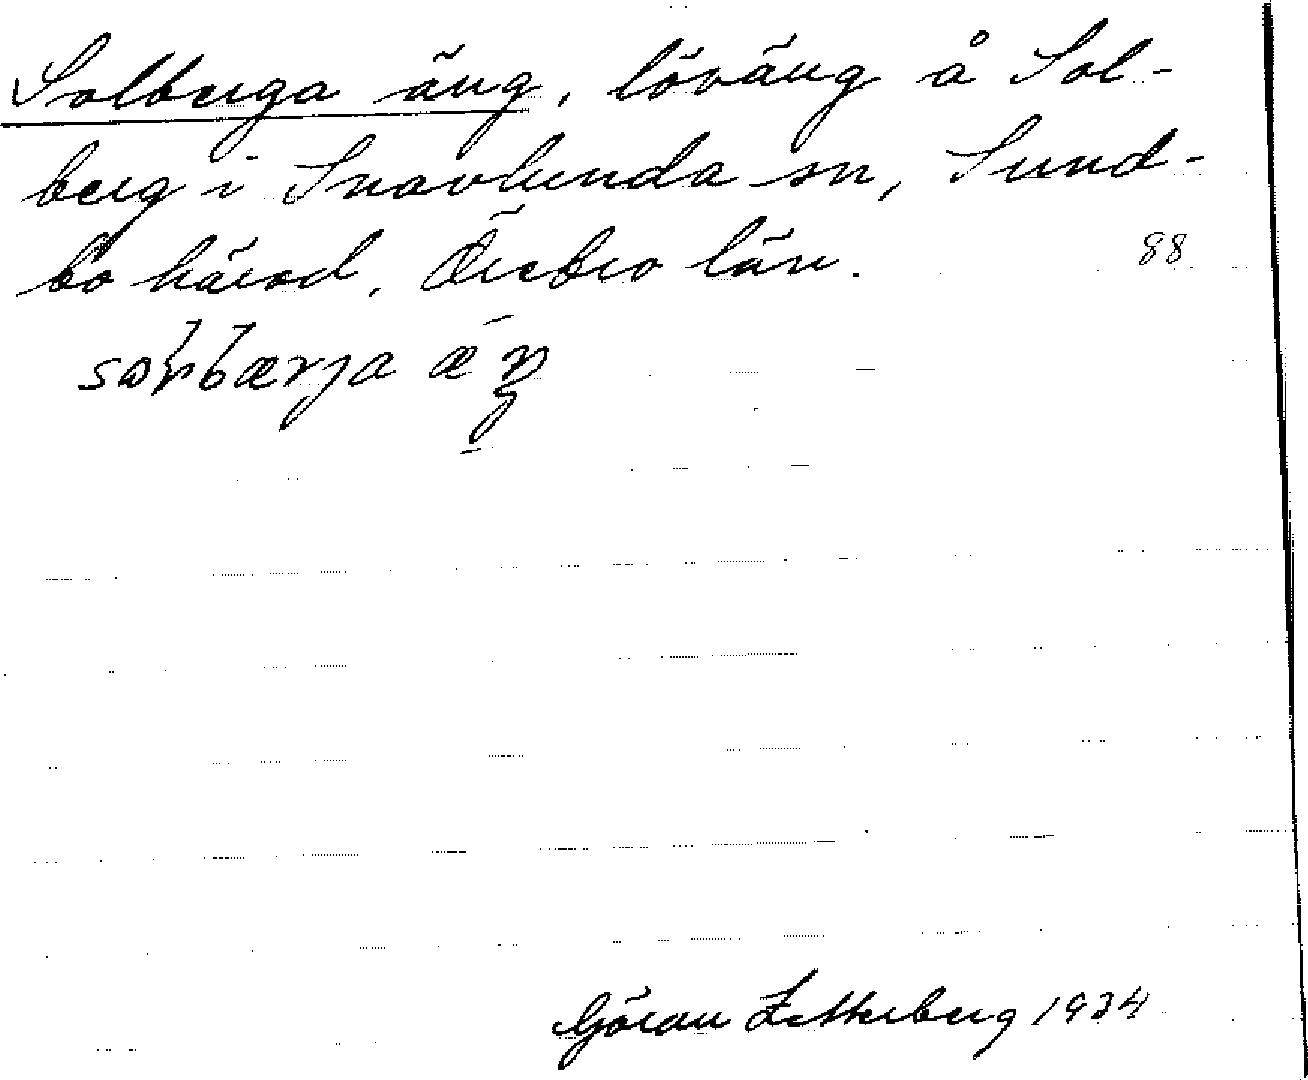 Solberga äng, löväng å Sol-
berg i Snavlunda sn, Sund-
bo härad, Örebro län.
88
Göran Zetterberg 1934